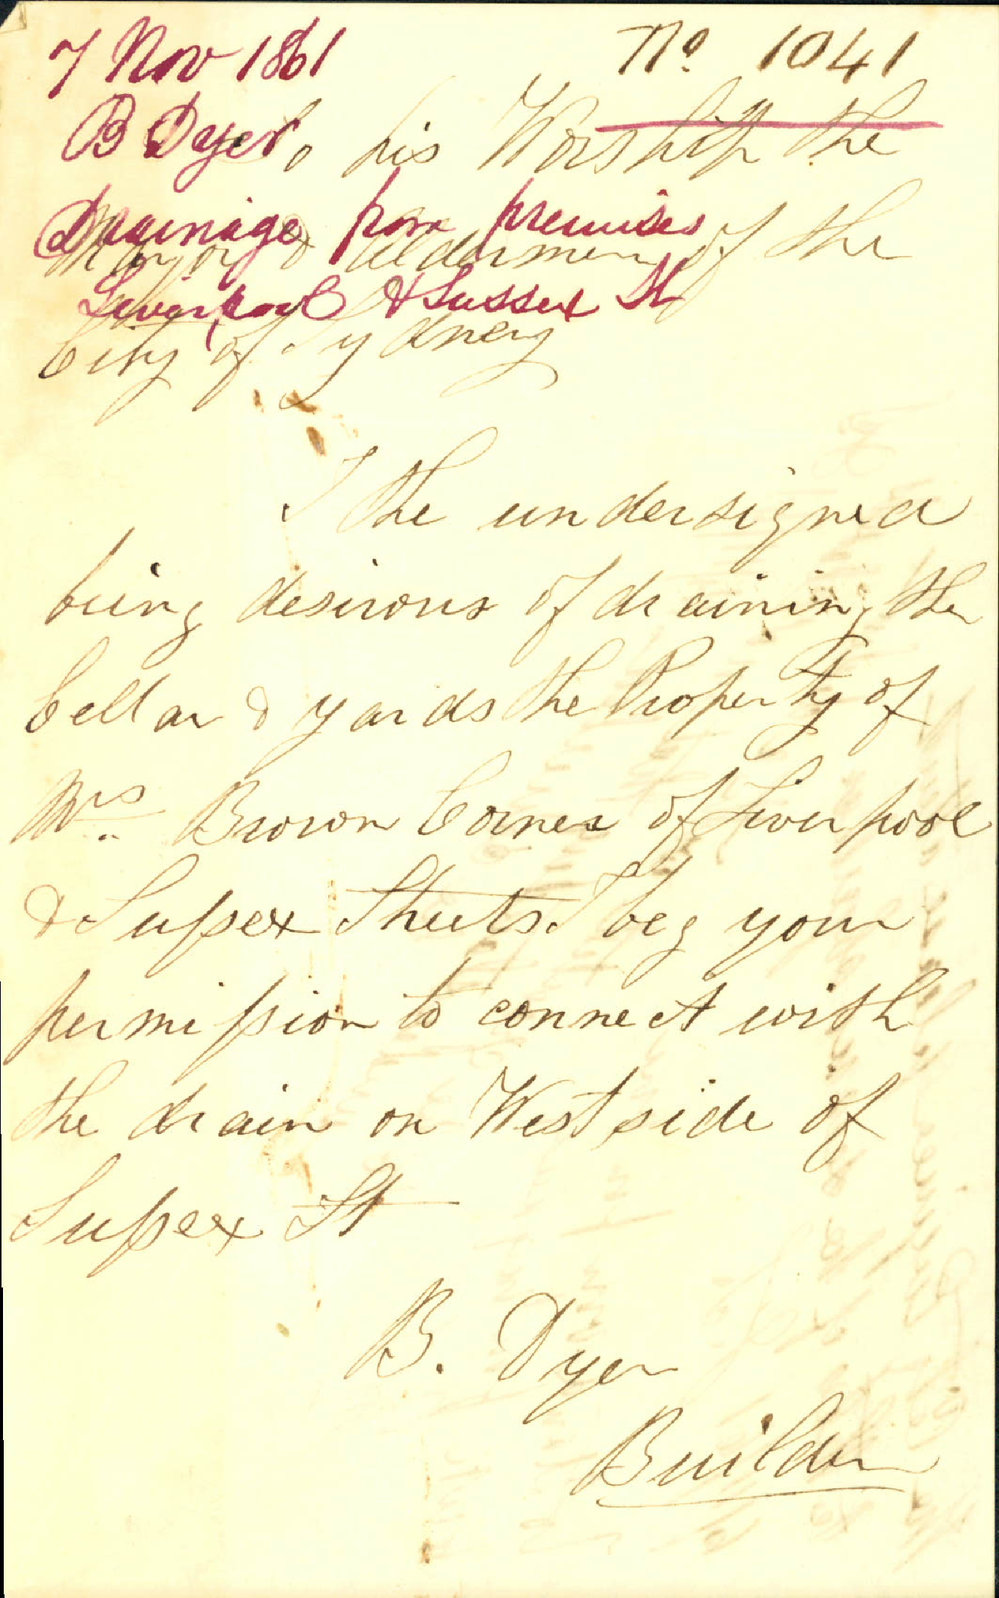 7 Nov 1861
No. 1041
B Dyer
Drainage from premises
Liverpool & Sussex St
To his Worship the
Mayor & Aldermen of the
City of Sydney
I the undersigned
being desirous of draining the
Cellar & yards the Property of
Mrs Brown Corner of Liverpool
& Sussex Streets. I beg your
permission to connect with
the drain on West side of
Sussex St
B. Dyer
Builder